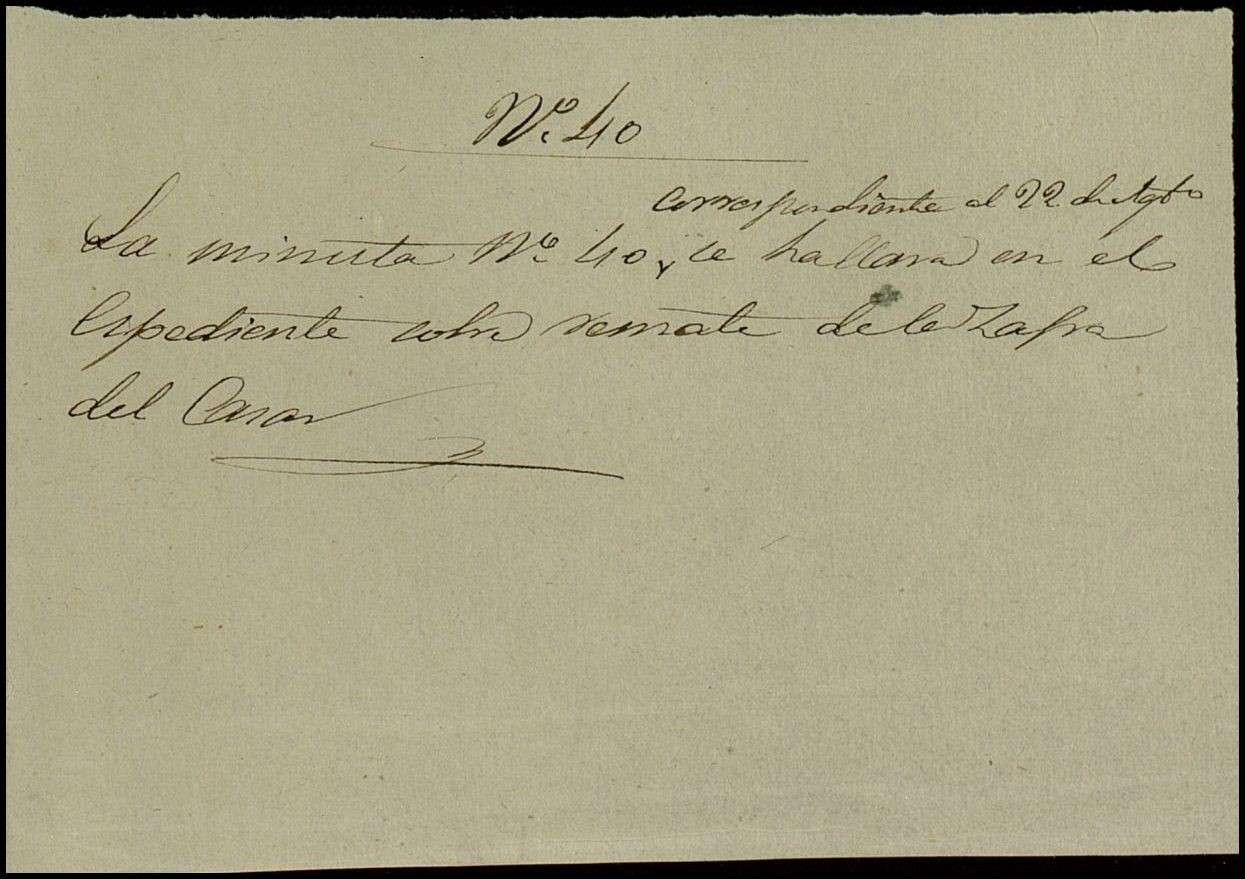 Nº 40
correspondiente al 22 de Agtº
La minuta Nº 40, se hallara en el
Espediente sobre remate de la Zafra
del Casar